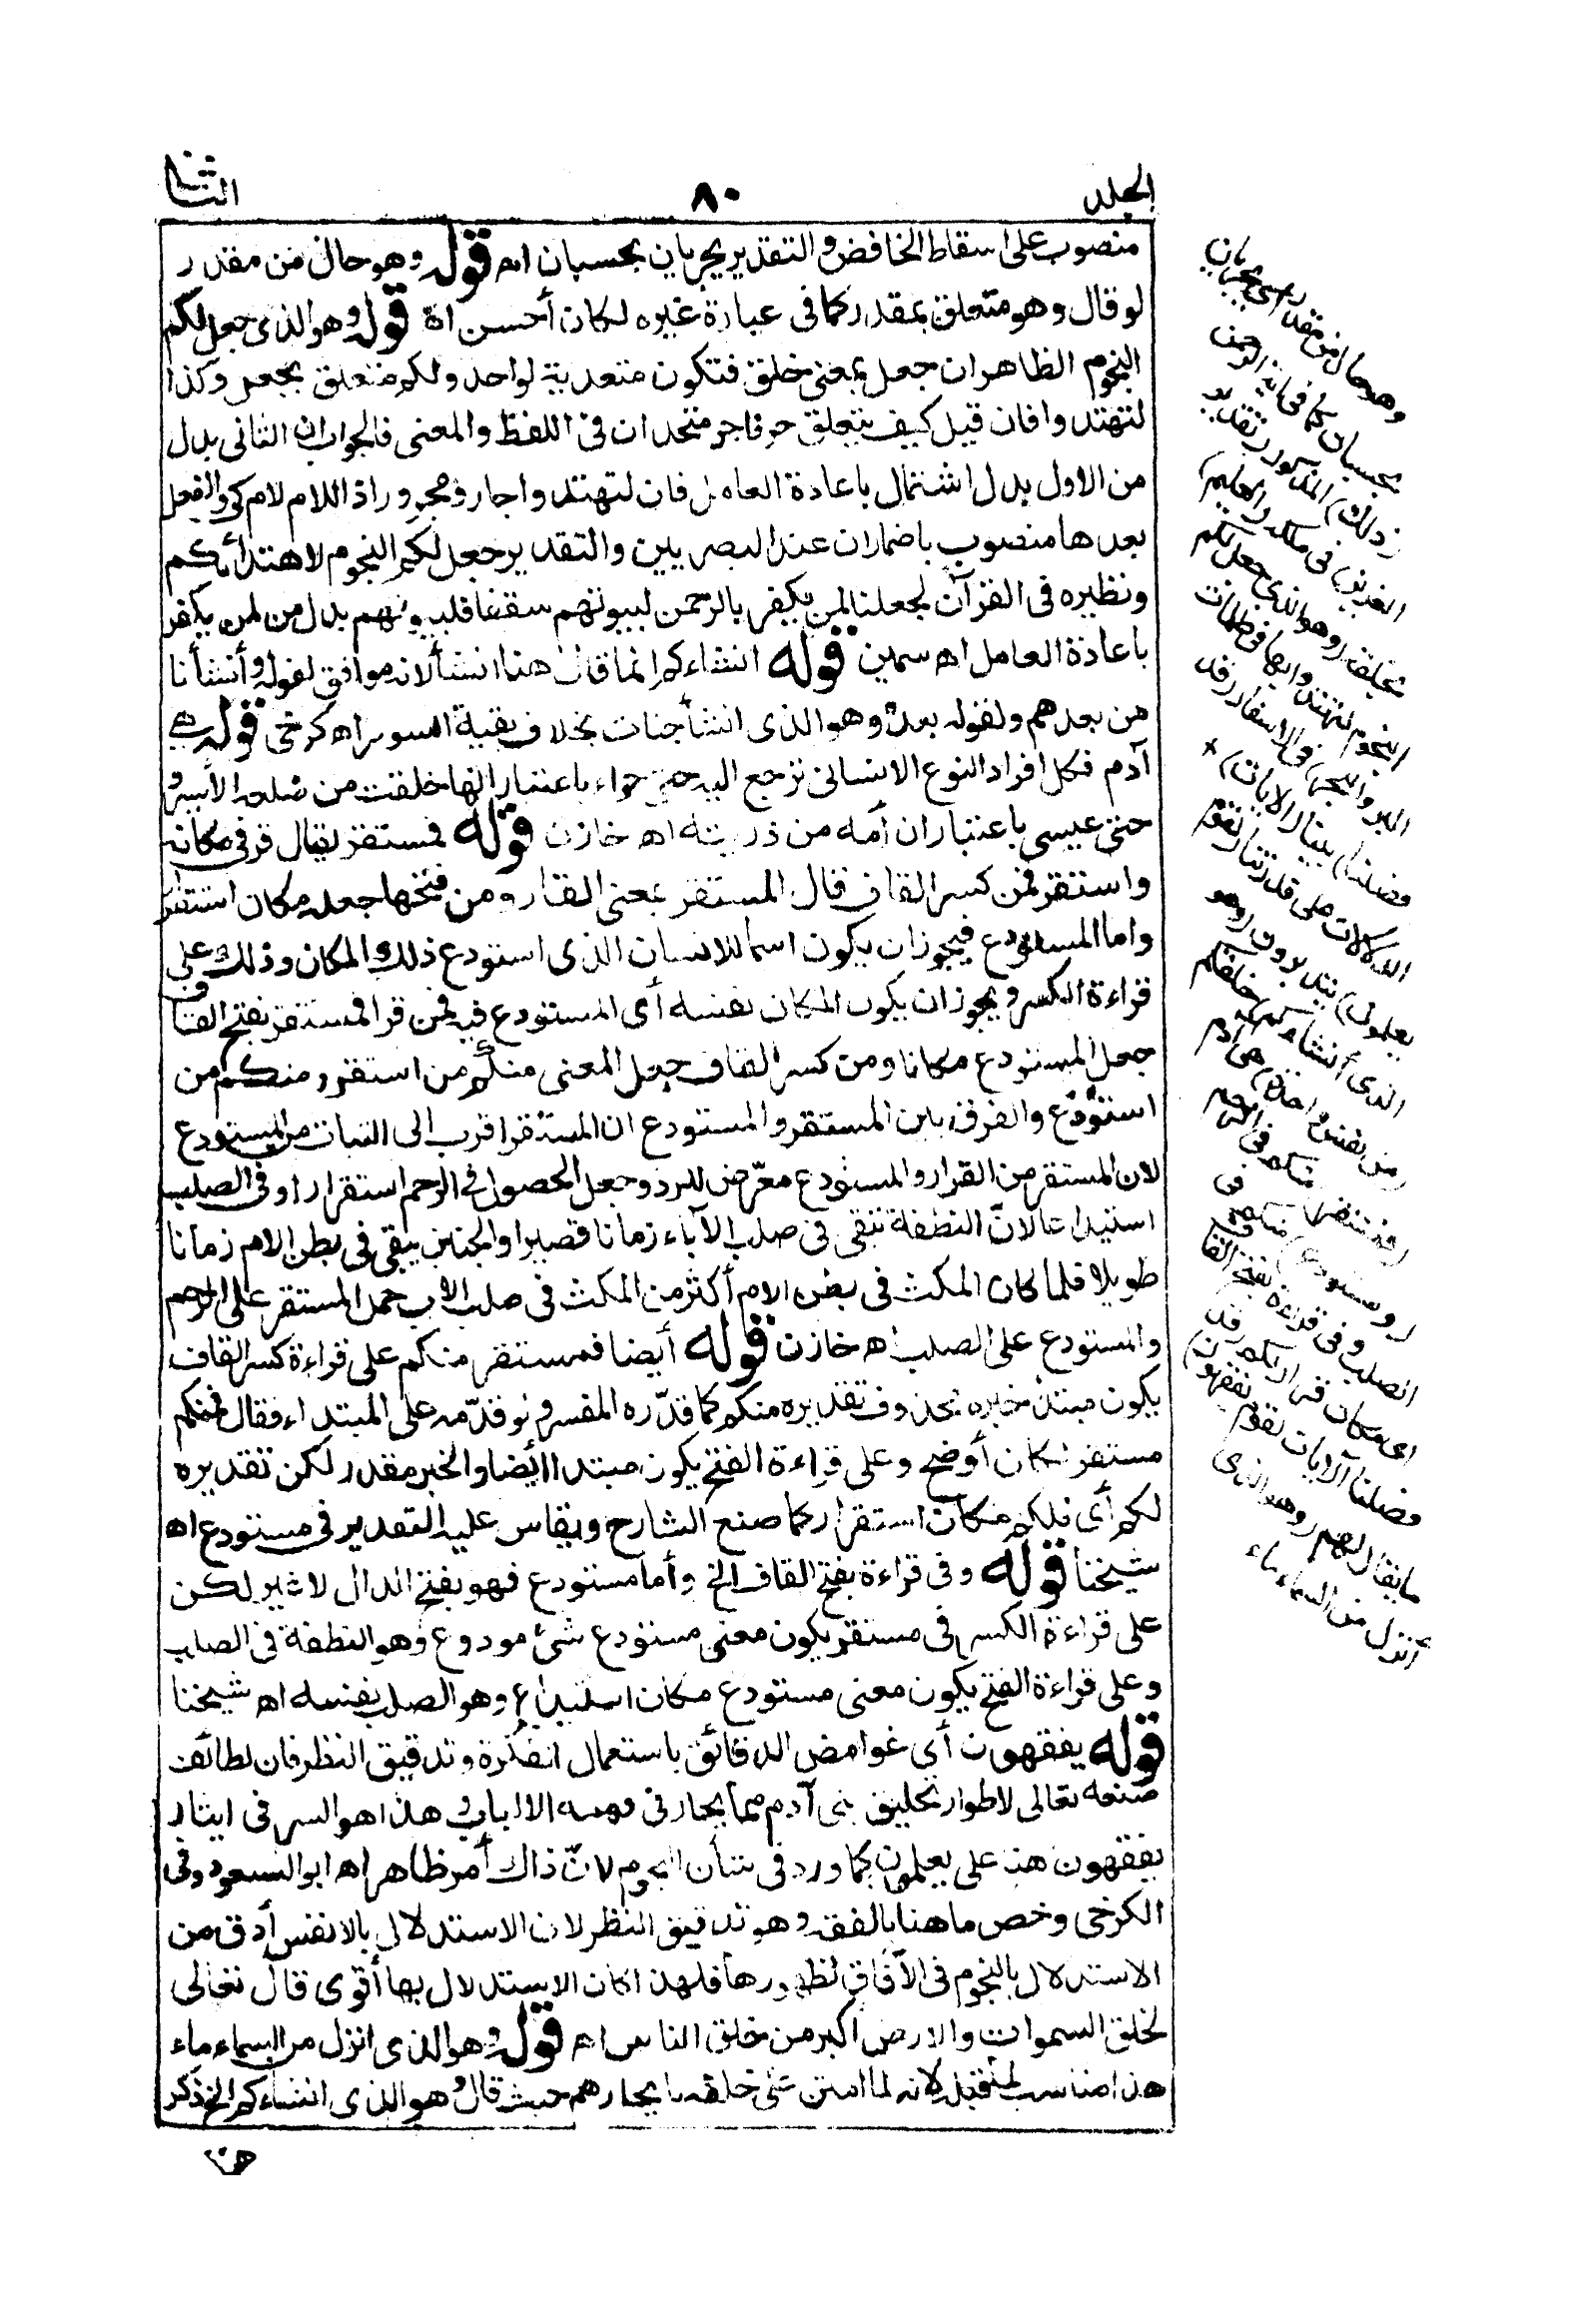 الجلد
٨٠
الثا
منصوب على اسقاط الخافض والتقدير يجريان بحسبان اه قوله وهو حال من مقدر
لو قال وهو متعلق بمقدر كما فى عبارة غيره لكان أحسن اه قوله وهو الذى جعل لكم
النجوم الظاهر ان جعل بمعنى خلق فتكون متعدية لواحد ولكم متعلق بجعل وكذا
لتهتدوا فان قيل كيف يتعلق حرفا جر متحدان فى اللفظ والمعنى فالجواب ان الثانى بدل
من الاول بدل اشتمال باعادة العامل فان لتهتدوا جار ومجرور اذ اللام لام كى والفعل
بعدها منصوب باضمار ان عند البصريين والتقدير جعل لكم النجوم لاهتدائكم
ونظيره فى القرآن لجعلنا لمن يكفر بالرحمن لبيوتهم سقفا فلبيوتهم بدل من لمن يكفر
باعادة العامل اه سمين قوله انشاءكم انما قال هنا انشأ لانه موافق لقوله وأنشأنا
من بعدهم ولقوله بعد وهو الذى انشأ جنات بخلاف بقية السور اه كرخى قوله هى
آدم فكل افراد النوع الانسانى ترجع اليه حتى حواء باعتبار انها خلقت من ضلعه الأيسر و
حتى عيسى باعتبار ان أمه من ذريته اه خازن قوله فمستقر يقال قر فى مكانه
واستقر فمن كسر القاف قال المستقر بمعنى القار ومن فتحها جعله مكان استقرار
واما المستودع فيجوز ان يكون اسما للانسان الذى استودع ذلك المكان وذلك على
قراءة الكسر ويجوز ان يكون المكان نفسه أى المستودع فيه فمن قرا فمستقر بفتح القاف
جعل المستودع مكانا ومن كسر القاف جعل المعنى منكم من استقر ومنكم من
استودع والفرق بين المستقر والمستودع ان المستقر اقرب الى الثبات من المستودع
لان المستقر من القرار والمستودع معرّض للرد وجعل الحصول فى الرحم استقرارا وفى الصلب
استيداعا لانّ النطفة تبقى فى صلب الآباء زمانا قصيرا والجنين يبقى فى بطن الام زمانا
طويلا فلما كان المكث فى بطن الام أكثر من المكث فى صلب الاب حمل المستقر على الرحم
والمستودع على الصلب اه خازن قوله أيضا فمستقر منكم على قراءة كسر القاف
يكون مبتدأ خبره محذوف تقديره منكم كما قدّره المفسر ولو قدّمه على المبتداء فقال فمنكم
مستقر لكان أوضح وعلى قراءة الفتح يكون مبتدا أيضا والخبر مقدر لكن تقديره
لكم أى فلكم مكان استقرار كما صنع الشارح ويقاس عليه التقدير فى مستودع اه
شيخنا قوله وفى قراءة بفتح القاف الخ وأما مستودع فهو بفتح الدال لا غير لكن
على قراءة الكسر فى مستقر يكون معنى مستودع شئ مودوع وهو النطفة فى الصلب
وعلى قراءة الفتح يكون معنى مستودع مكان استيداع وهو الصلب نفسه اه شيخنا
قوله يفقهون أى غوامض الدقائق باستعمال الفكرة وتدقيق النظر فان لطائف
صنعه تعالى لاطوار تخليق بنى آدم مما يحار فى فهمه الالباب وهذا هو السر فى ايثار
يفقهون هنا على يعلمون كما ورد فى شأن النجوم لانّ ذاك أمر ظاهر اه ابو السعود وفى
الكرخى وخص ما هنا بالفقه وهو تدقيق النظر لان الاستدلال بالانفس أدق من
الاستدلال بالنجوم فى الآفاق لظهورها فلهذا كان الاستدلال بها أقوى قال تعالى
لخلق السموات والارض اكبر من خلق الناس اه قوله وهو الذى انزل من السماء ماء
هذا مناسب لما قبله لانه لما امتن على خلقه بايجادهم حيث قال وهو الذى انشاءكم الخ ذكر
وهو حال من مقدر أى يجريان
بحسبان كما فى آية الرحمن
(ذلك) المذكور (تقدير
العزيز) فى ملكه (العليم)
بخلقه (وهو الذى جعل لكم
النجوم لتهتدوا بها فى ظلمات
البر والبحر) فى الاسفار (قد
فصلنا) بينا (الآيات)
الدلالات على قدرتنا (لقوم
يعلمون) يتدبرون (وهو
الذى أنشاءكم) خلقكم
(من نفس واحدة) هى آدم
(فمستقر) منكم فى الرحم
(ومستودع) منكم فى
الصلب وفى قراءة بفتح القاف
اى مكان قرار لكم (قد
فصلنا الآيات لقوم يفقهون)
ما يقال لهم (وهو الذى
انزل من السماء ماء